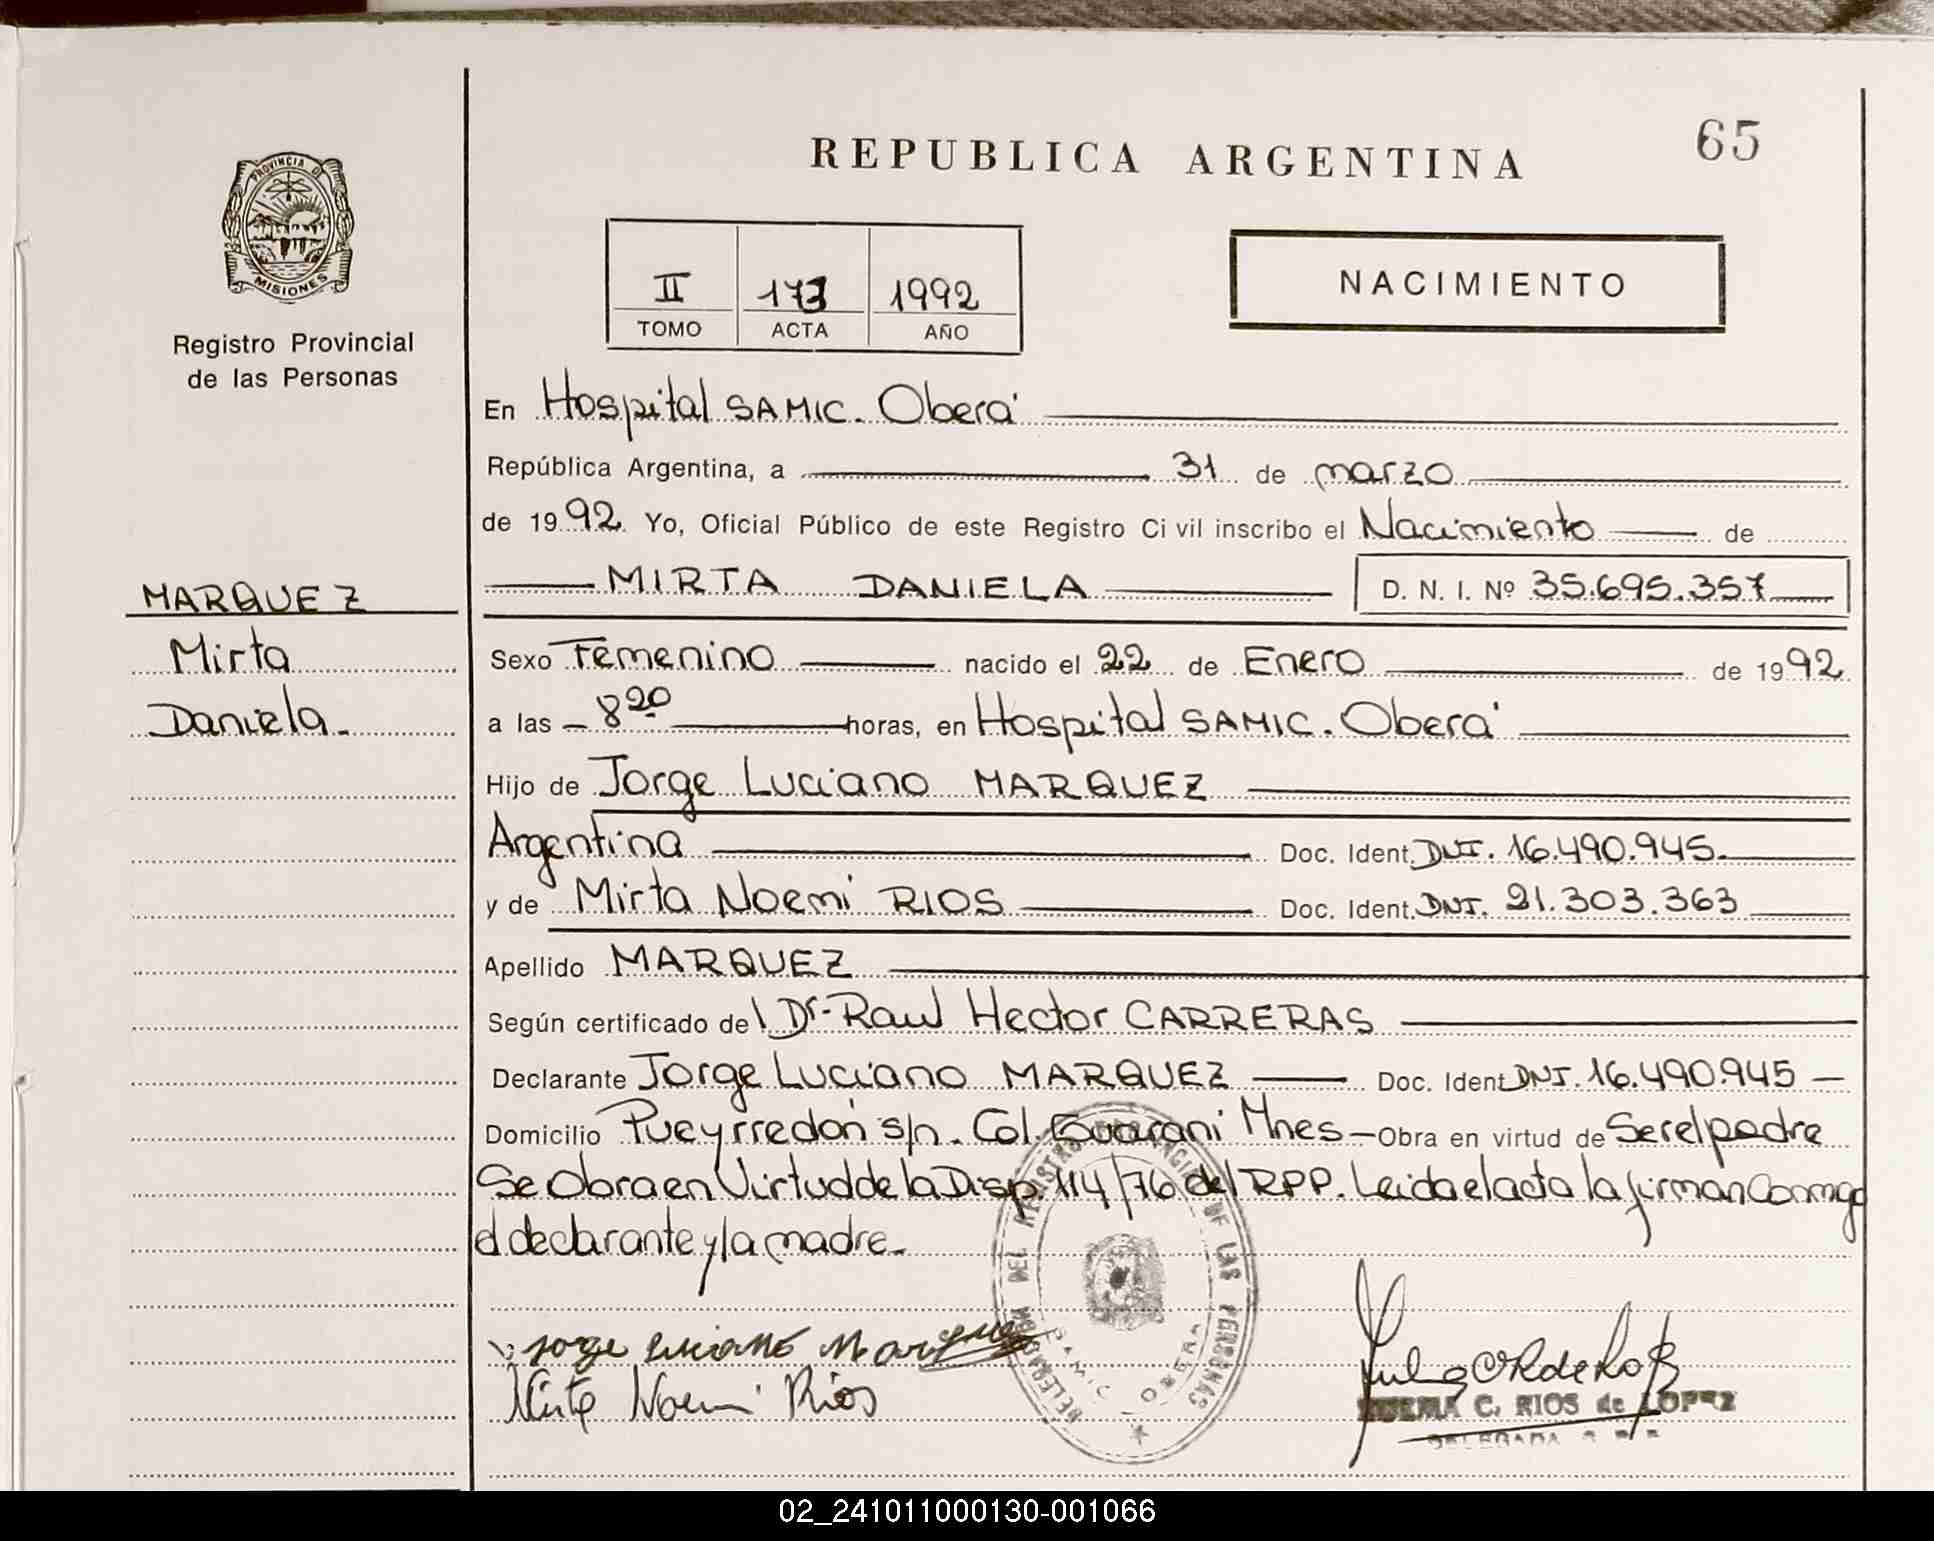 REPUBLICA ARGENTINA
65
PROVINCIA DE
MISIONES
Registro Provincial
de las Personas
II 173 1992
TOMO ACTA AÑO
NACIMIENTO
En Hospital SAMIC. Oberá
República Argentina, a 31 de marzo
de 1992. Yo, Oficial Público de este Registro Ci vil inscribo el Nacimiento de
MIRTA DANIELA D. N. I. Nº 35.695.357
MARQUEZ
Mirta
Daniela.
Sexo Femenino nacido el 22 de Enero de 1992
a las 8 20 horas, en Hospital SAMIC. Oberá
Hijo de Jorge Luciano MARQUEZ
Argentina Doc. Ident. DNI. 16.490.945.
y de Mirta Noemi RIOS Doc. Ident. DNI. 21.303.363
Apellido MARQUEZ
Según certificado del Dr. Raul Hector CARRERAS
Declarante Jorge Luciano MARQUEZ Doc. Ident DNI. 16.490.945
Domicilio Pueyrredón s/n. Col. Guarani Mnes Obra en virtud de Ser el padre
Se Obra en Virtud de la Disp. 114/76 del RPP. Leida el acta la firman Conmigo
el declarante y la madre.
DELEGACION DEL REGISTRO PROVINCIAL DE LAS PERSONAS
SAMIC - OBERA
Jorge Luciano Marquez
Mirta Noemi Rios
C. RIOS de LOPEZ
DELEGADA
02_241011000130-001066